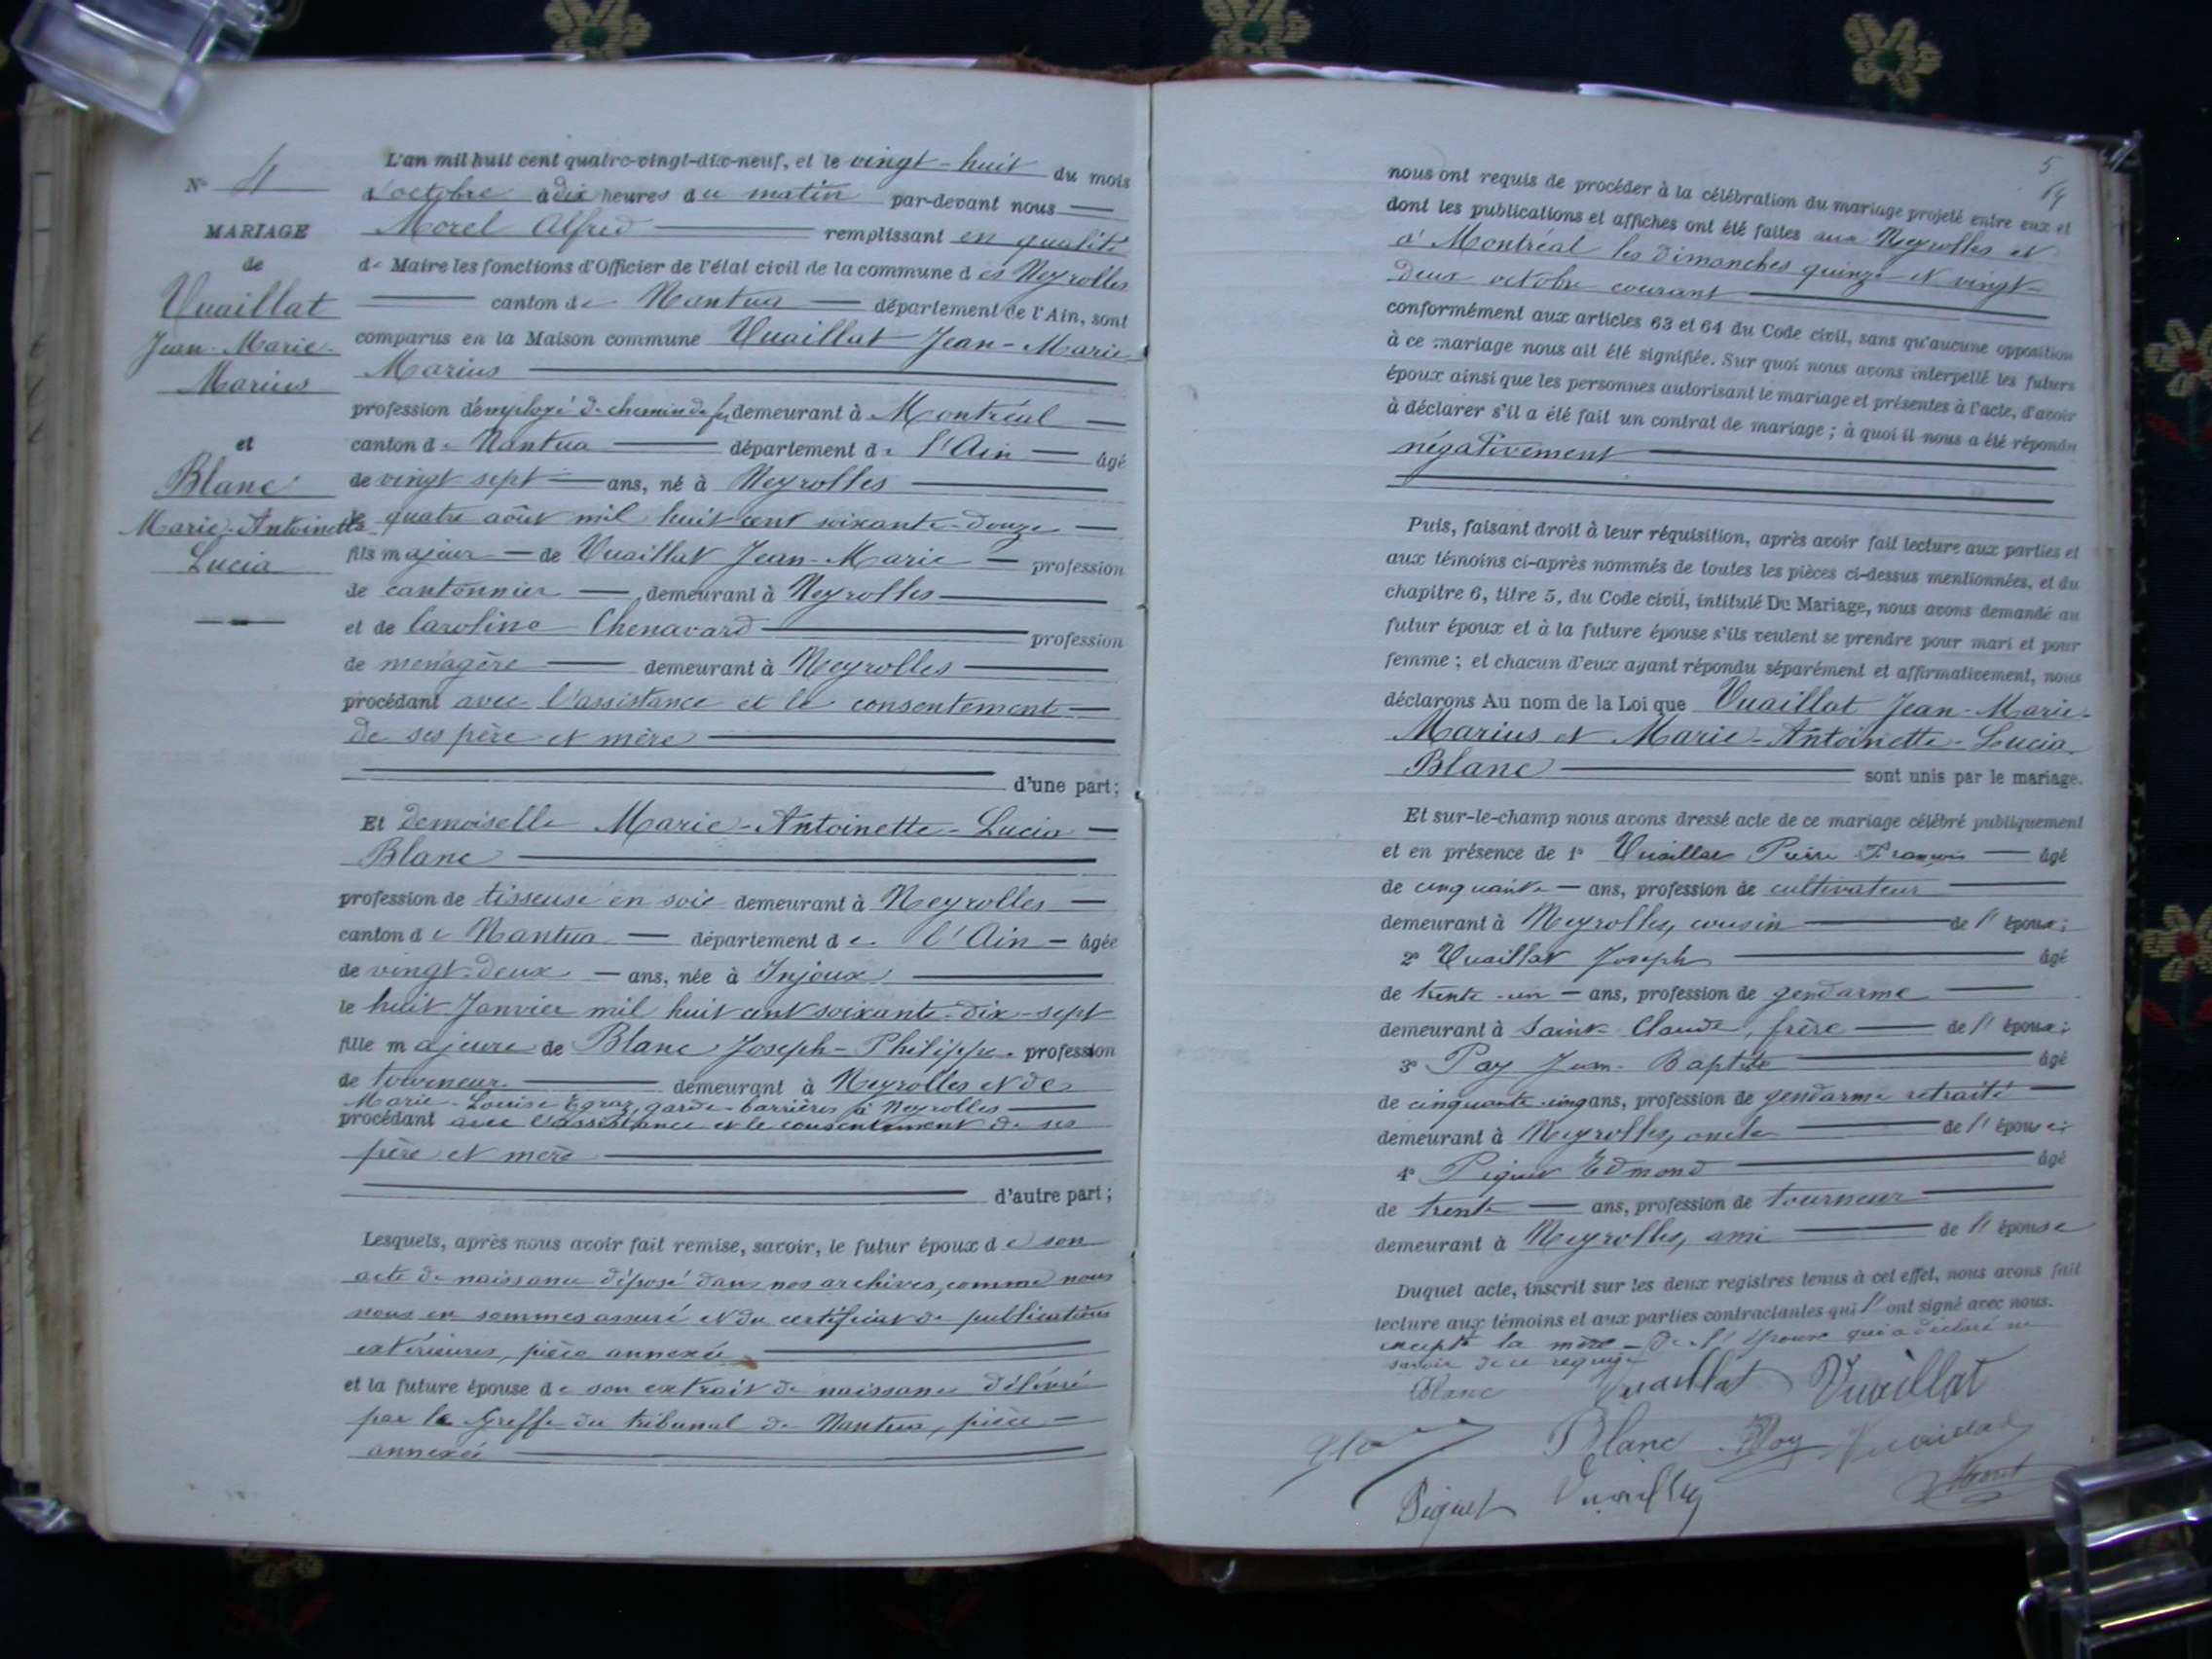 N° 4
MARIAGE
de
Vuaillat
Jean-Marie-
Marius
et
Blanc
Marie-Antoinette
Lucia
L'an mil huit cent quatre-vingt-dix-neuf, et le vingt-huit du mois
d'octobre à dix heures du matin par-devant nous
Morel Alfred remplissant en qualité
de Maire les fonctions d'Officier de l'état civil de la commune des Neyrolles
canton de Nantua département de l'Ain, sont
comparus en la Maison commune Vuaillat Jean-Marie-
Marius
profession d'employé de chemin de fer demeurant à Montréal
canton de Nantua département de l'Ain âgé
de vingt sept ans, né à Neyrolles
le quatre août mil huit cent soixante-douze
fils majeur de Vuaillat Jean-Marie profession
de cantonnier demeurant à Neyrolles
et de Caroline Chenavard profession
de ménagère demeurant à Neyrolles
procédant avec l'assistance et le consentement
de ses père et mère
d'une part;
Et demoiselle Marie-Antoinette-Lucia
Blanc
profession de tisseuse en soie demeurant à Neyrolles
canton de Nantua département de l'Ain âgée
de vingt-deux ans, née à Injoux
le huit Janvier mil huit cent soixante-dix-sept
fille majeure de Blanc Joseph-Philippe profession
de tourneur demeurant à Neyrolles et de
Marie-Louise Egraz, garde-barrières à Neyrolles
procédant avec l'assistance et le consentement de ses
père et mère
d'autre part;
Lesquels, après nous avoir fait remise, savoir, le futur époux de son
acte de naissance déposé dans nos archives, comme nous
nous en sommes assuré et du certificat de publications
extérieures, pièce annexée
et la future épouse de son extrait de naissance délivré
par le Greffe du tribunal de Nantua, pièce
annexée
5
nous ont requis de procéder à la célébration du mariage projeté entre eux et
dont les publications et affiches ont été faites aux Neyrolles et
à Montréal les dimanches quinze et vingt-
deux octobre courant
conformément aux articles 63 et 64 du Code civil, sans qu'aucune opposition
à ce mariage nous ait été signifiée. Sur quoi nous avons interpellé les futurs
époux ainsi que les personnes autorisant le mariage et présentes à l'acte, d'avoir
à déclarer s'il a été fait un contrat de mariage; à quoi il nous a été répondu
négativement
Puis, faisant droit à leur réquisition, après avoir fait lecture aux parties et
aux témoins ci-après nommés de toutes les pièces ci-dessus mentionnées, et du
chapitre 6, titre 5, du Code civil, intitulé Du Mariage, nous avons demandé au
futur époux et à la future épouse s'ils veulent se prendre pour mari et pour
femme; et chacun d'eux ayant répondu séparément et affirmativement, nous
déclarons Au nom de la Loi que Vuaillat Jean-Marie-
Marius et Marie-Antoinette-Lucia
Blanc sont unis par le mariage.
Et sur-le-champ nous avons dressé acte de ce mariage célébré publiquement
et en présence de 1° Vuaillat Pierre François âgé
de cinquante ans, profession de cultivateur
demeurant à Neyrolles, cousin de l'époux;
2° Vuaillat Joseph âgé
de trente-un ans, profession de gendarme
demeurant à Saint-Claude, frère de l'époux;
3° Pay Jean-Baptiste âgé
de cinquante-cinq ans, profession de gendarme retraité
demeurant à Neyrolles, oncle de l'époux;
4° Piquet Edmond âgé
de trente ans, profession de tourneur
demeurant à Neyrolles, ami de l'épouse
Duquel acte, inscrit sur les deux registres tenus à cet effet, nous avons fait
lecture aux témoins et aux parties contractantes qui l'ont signé avec nous.
excepté la mère de l'épouse qui a déclaré ne
savoir de ce requise
Blanc Vuaillat Vuaillat
Blanc
Piquet
Morel